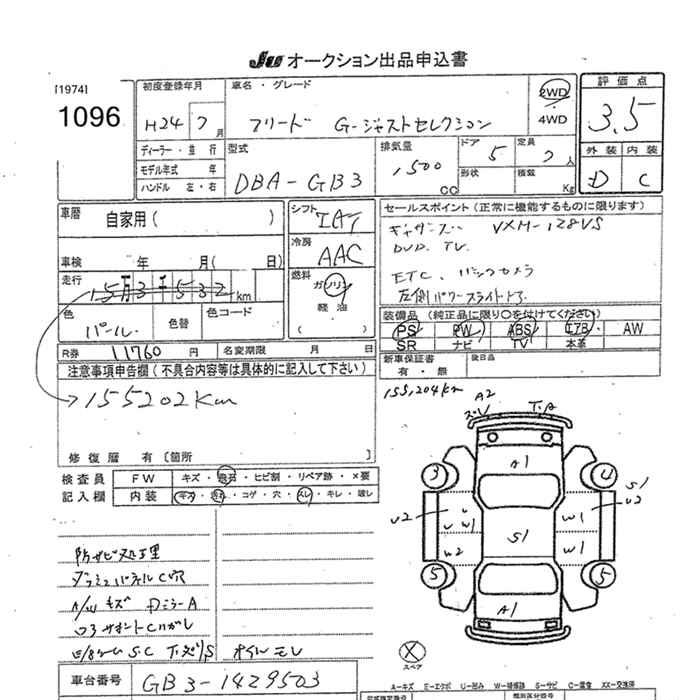 JU オークション出品申込書
[1974]
1096
初度登録年月
H24 7 月
車名・グレード
フリード G-ジャストセレクション
2WD
・
4WD
評価点
3.5
外装 内装
D C
ディーラー・並行
モデル年式 年
ハンドル 左・右
型式
DBA-GB3
排気量
1,500
CC
ドア
5
形状
定員
7人
積載
Kg
車歴
自家用( )
車検 年 月( 日)
走行
15万3千532km
色
パール
色替
色コード
シフト
IAT
冷房
AAC
燃料
ガソリン
・
軽油
( )
セールスポイント(正常に機能するものに限ります)
ギャザズ VXM-128VS
DVD. TV.
ETC. バックカメラ
左側パワースライドドア
装備品(純正品に限り〇を付けてください)
PS PW ABS エアB AW
SR ナビ TV 本革
新車保証書
有・無
後日品
R券 11760 円 名変期限 月 日
注意事項申告欄(不具合内容等は具体的に記入して下さい)
155202Km
155,204km
修復歴 有〔箇所 〕
検査員
記入欄
FW キズ・飛石・ヒビ割・リペア跡・×要
内装 キズ・汚れ・コゲ・穴・スレ・キレ・破レ
A2
ズレ T.A
A1
3 4
S1
U2
U2
U W1
S1
W1
W2
W1
5 5
A1
X
スペア
防サビ処理
ダッシュパネルC穴
A/Wキズ DミラーA
コアサポートCハガレ
オイルモレ
車台番号 GB3-1429503
A―キズ E―エクボ U―凹み W―補修跡 S―サビ C―腐食 XX―交換済